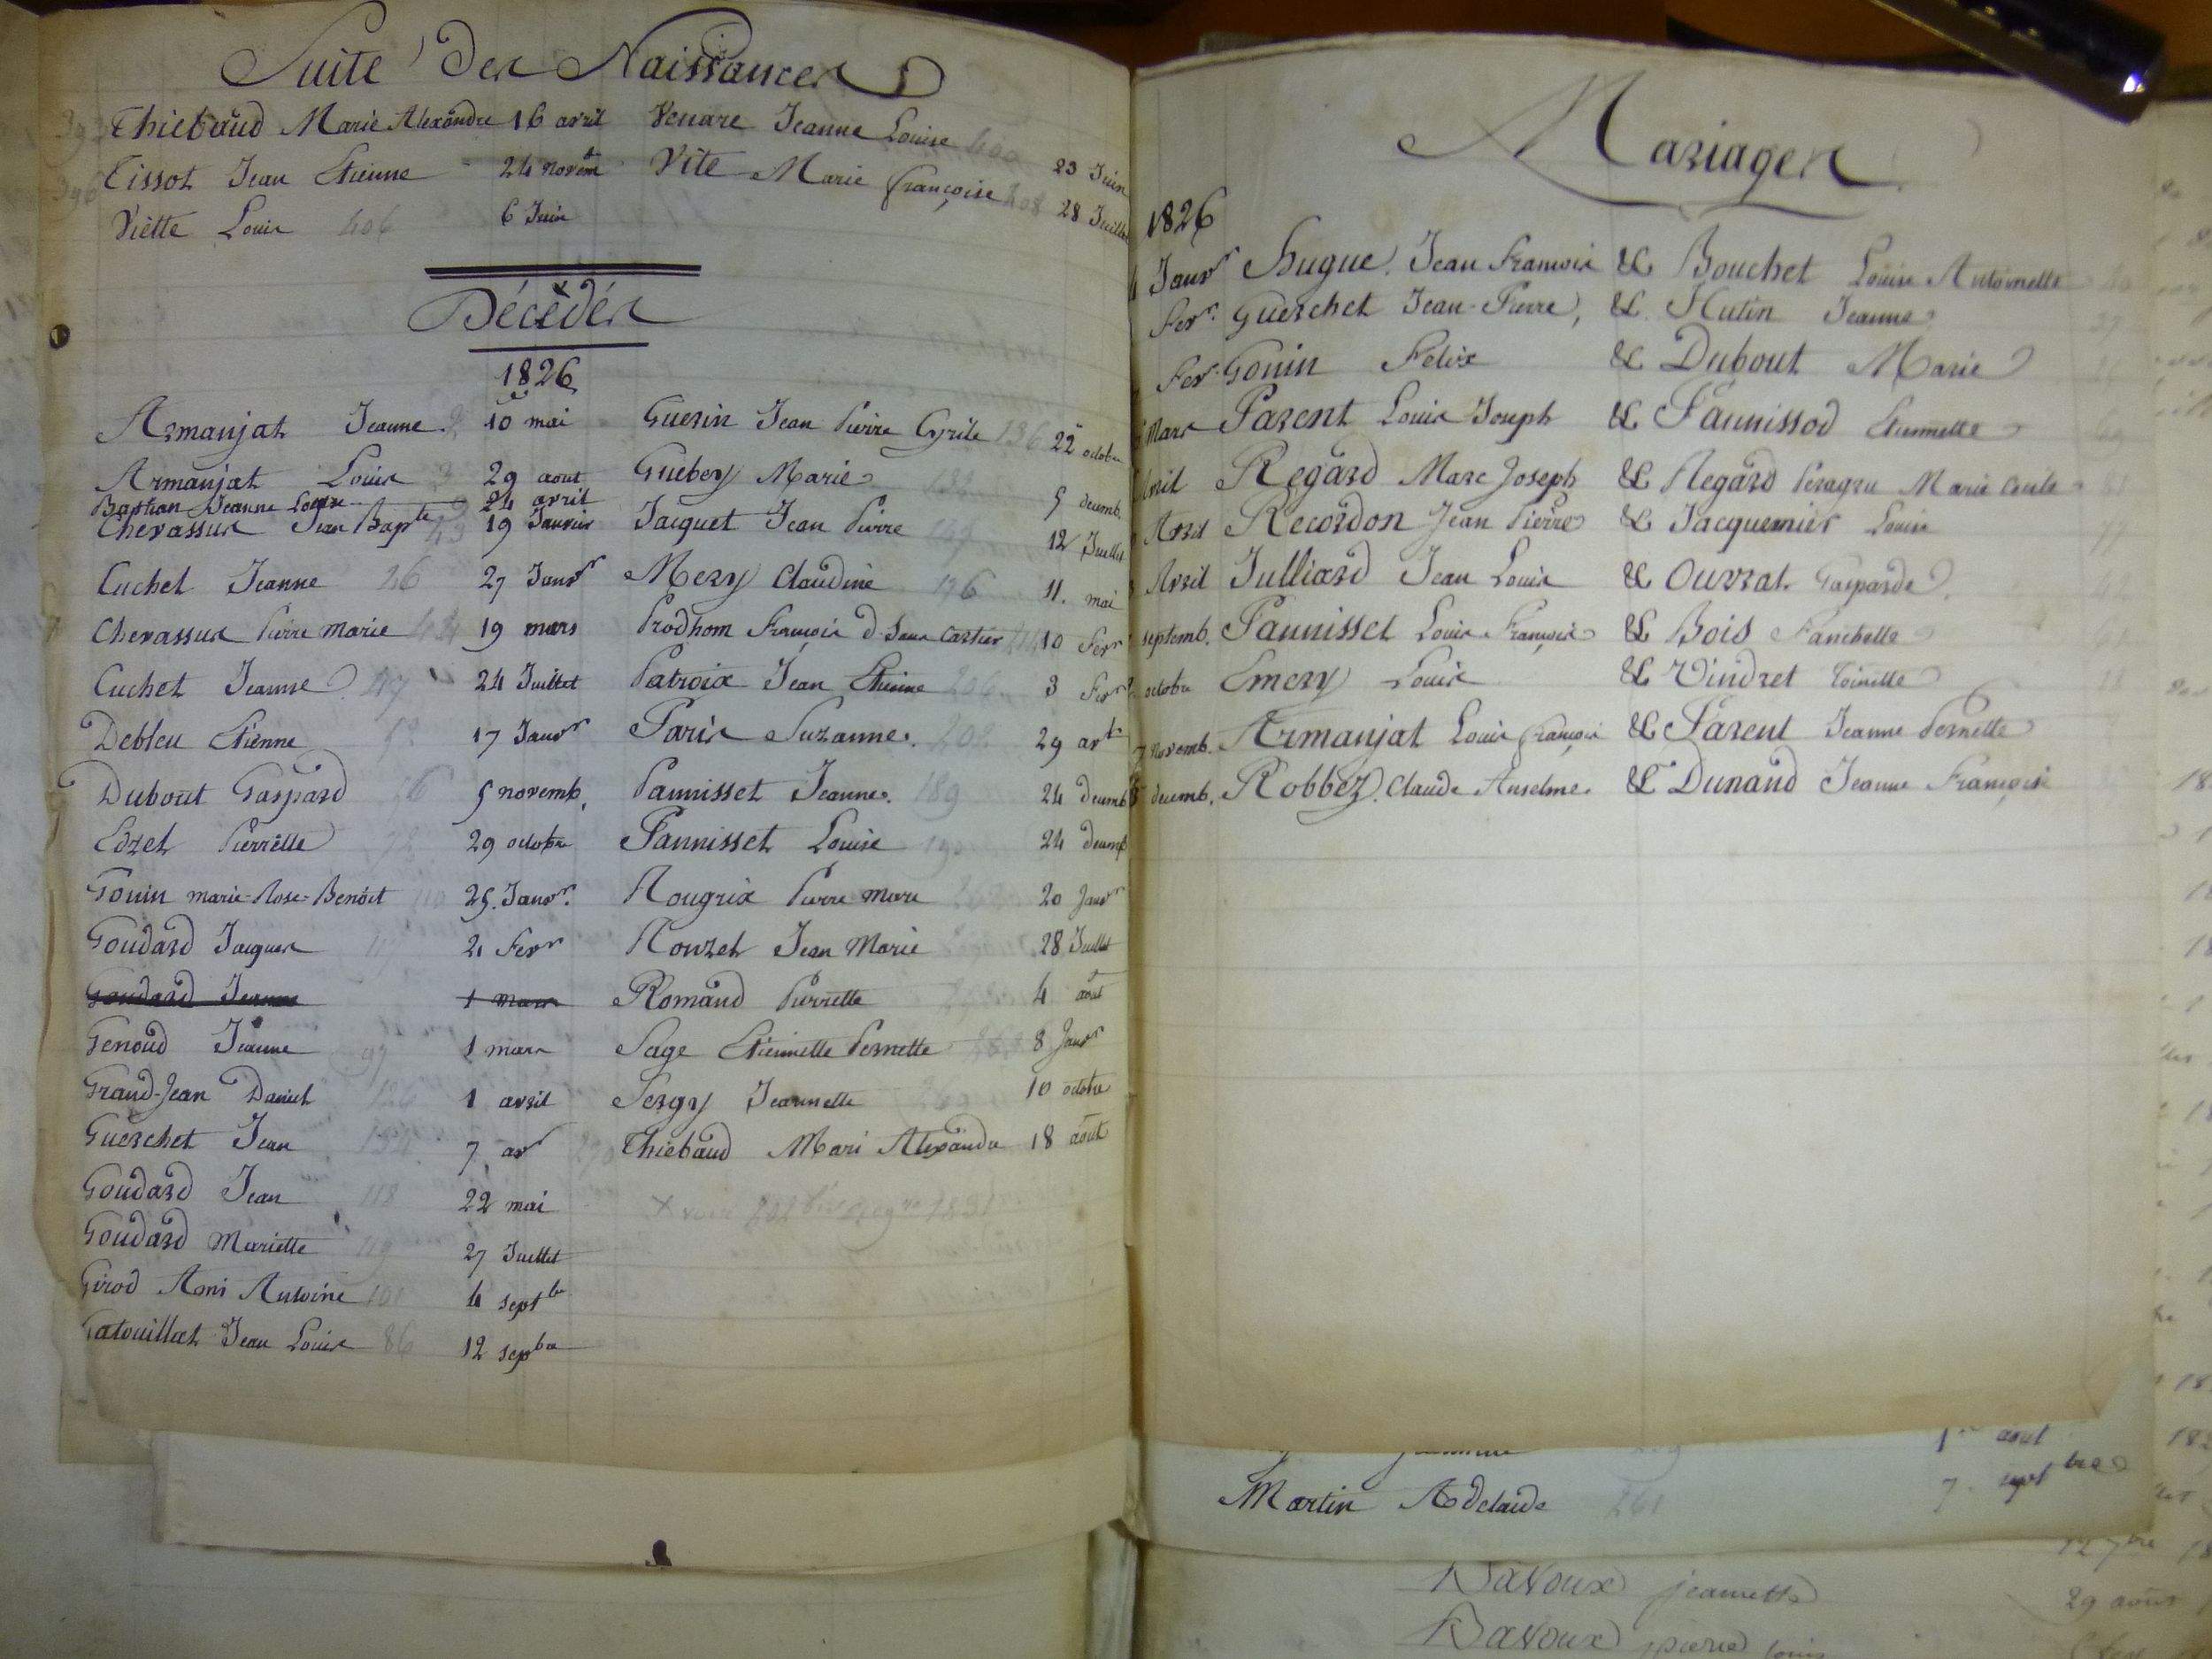 Suite des Naissances
Thiebaud Marie Alexandre 16 avril
Tissot Jean Etienne 24 novem
Viette Louis 406 6 Juin
Venare Jeanne Louise 23 Juin
Vite Marie françoise 408 28 Juillet
Décédés
1826
Armanjat Jeanne 10 mai
Armanjat Louis 3 29 aout
Bastian Jeanne Louise 24 avril
Chevassus Jean Bapte 43 19 Janvier
Cuchet Jeanne 46 27 Janvr
Chevassus Pierre Marie 19 mars
Cuchet Jeanne 47 24 Juillet
Debleu Etienne 17 Janvr
Dubout Gaspard 5 novemb.
Edzet Pierrette 29 octobre
Gonin marie-Rose-Benoit 110 25. Janvr.
Goudard Jacques 2 Fevr
Goudard Jeanne 1 mars
Genoud Jeanne 97 1 mars
Grand-Jean Daniel 126 1 avril
Guerchet Jean 134 7 avr
Goudard Jean 118 22 mai
Goudard Mariette 119 27 Juillet
Girod Ami Antoine 101 4 septbre
Gatouillat Jean Louis 86 12 sepbre
Guerin Jean Pierre Cyrile 136 22 octobre
Guebey Marie 132 5 decemb.
Jacquet Jean Pierre 147 12 Juillet
Mery Claudine 176 11. mai
Prodhom François d Jean Cartier 10 Fevr
Patroix Jean Etienne 206 3 Fevr
Paris Suzanne. 202 29 avr
Pannisset Jeanne. 189 24 decemb
Pannisset Louise 190 24 decemb
Rougrix Pierre Marie 20 Janvr
Rouzet Jean Marie 28 Juillet
Romand Pierrette 4 aout
Sage Etiennette Pernette 8 Janvr
Sergy Jeannette 269 10 octobre
270 Thiebaud Mari Alexandre 18 aout
Mariages
1826
Janvr Hugue. Jean François & Bouchet Louise Antoinette
Fevr. Guerchet Jean-Pierre, & Hutin Jeanne
Fevr Gonin Felix & Dubout Marie
Mars Parent Louis Joseph & Pannissod Etiennette
Avril Regard Marc Joseph & Regard Marie
Avril Recordon Jean Pierre & Jacquemier Louise
Avril Julliard Jean Louis & Ouvrat Gasparde
septemb. Pannisset Louis François & Bois Fanchette
octobre Emery Louis & Vindret Toinette
7 novemb. Armanjat Louis françois & Parent Jeanne Pernette
decemb. Robbez. Claude Anselme. & Dunand Jeanne Françoise
1er aout
Martin Adelaide 261 7 sept bre
Davoux jeannette 29 août
Davoux pierre louis